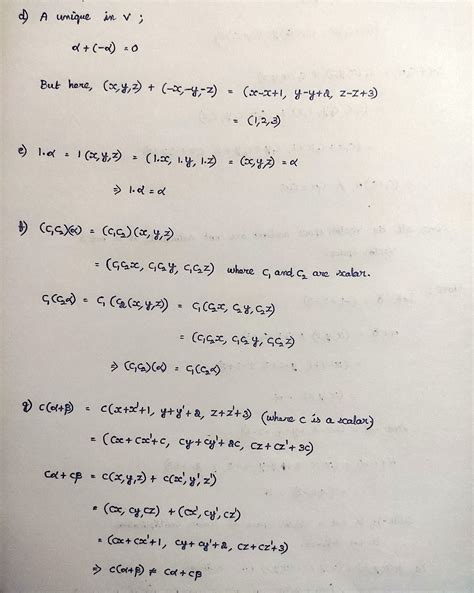 d) A unique in V ;
α + (-α) = 0
But here, (x,y,z) + (-x,-y,-z) = (x-x+1, y-y+2, z-z+3)
= (1,2,3)
e) 1.α = 1(x,y,z) = (1.x, 1.y, 1.z) = (x,y,z) = α
⇒ 1.α = α
f) (C₁C₂)(α) = (C₁C₂)(x,y,z)
= (C₁C₂x, C₁C₂y, C₁C₂z) where C₁ and C₂ are scalar.
C₁(C₂α) = C₁(C₂(x,y,z)) = C₁(C₂x, C₂y, C₂z)
= (C₁C₂x, C₁C₂y, C₁C₂z)
⇒ (C₁C₂)(α) = C₁(C₂α)
g) C(α+β) = C(x+x'+1, y+y'+2, z+z'+3) (where C is a scalar)
= (Cx+Cx'+C, Cy+Cy'+2C, Cz+Cz'+3C)
Cα + Cβ = C(x,y,z) + C(x',y',z')
= (Cx, Cy, Cz) + (Cx', Cy', Cz')
= (Cx+Cx'+1, Cy+Cy'+2, Cz+Cz'+3)
⇒ C(α+β) ≠ Cα + Cβ